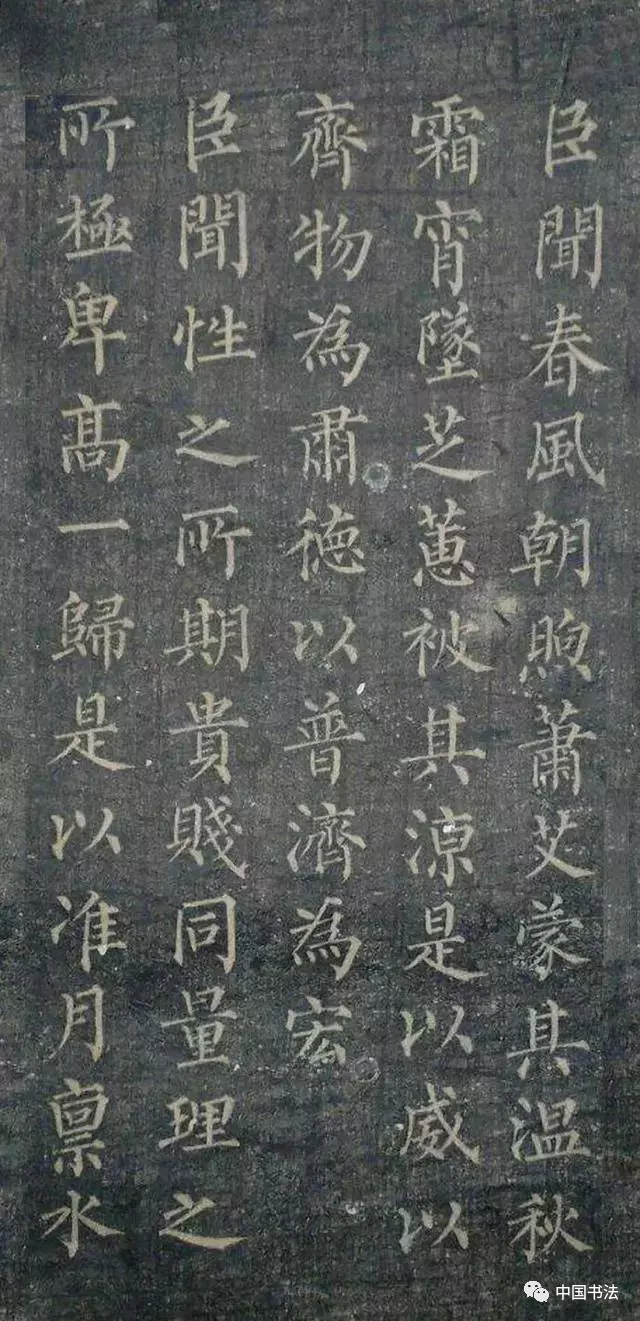 臣聞春風朝煦蕭艾蒙其温秋
霜宵墜芝蕙被其凉是以威以
齊物為肅德以普濟為宏
臣聞性之所期貴賤同量理之
所極卑高一歸是以准月禀水
中国书法